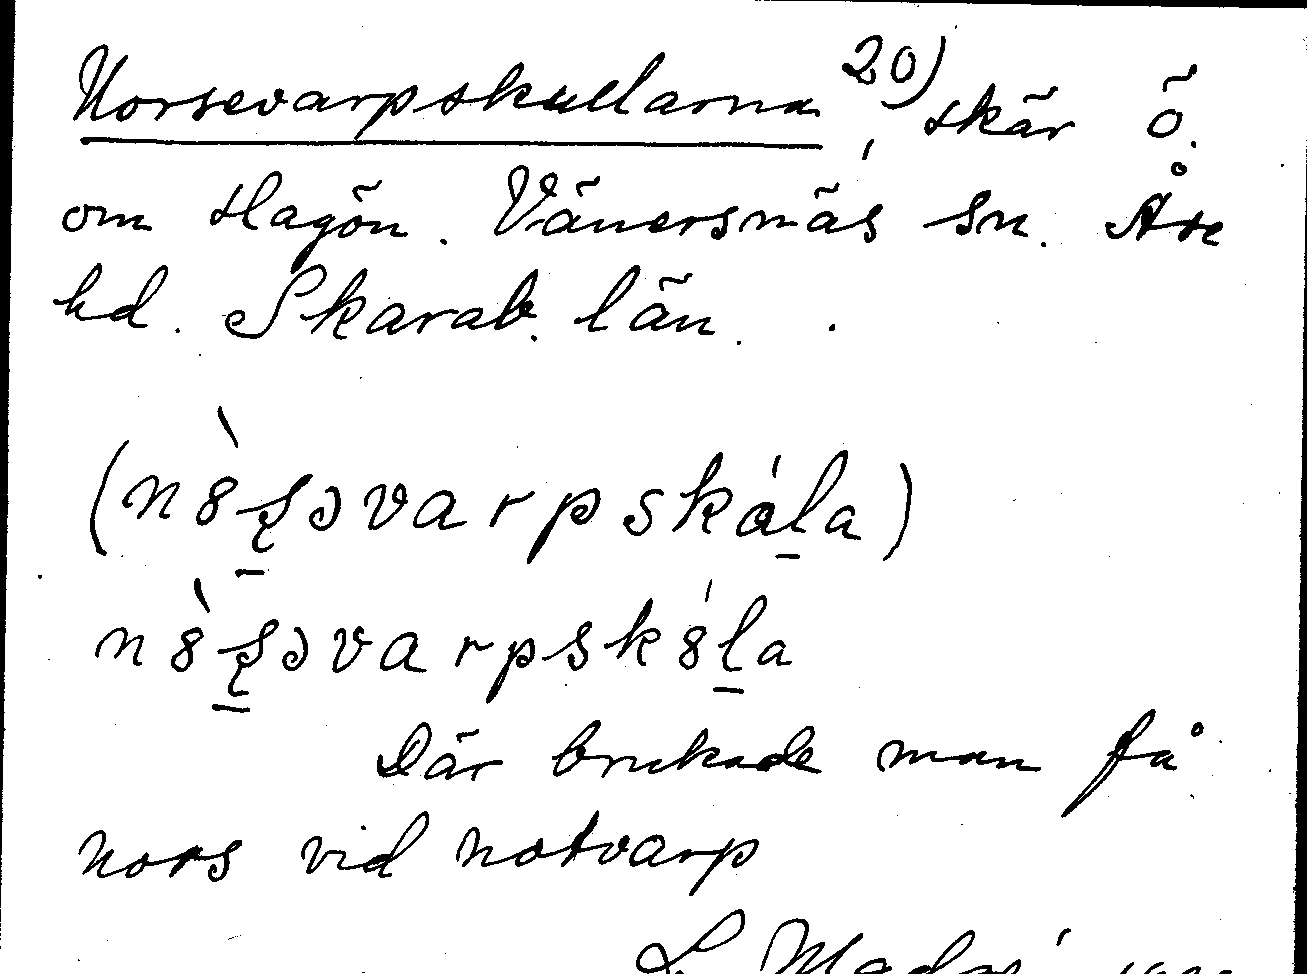 Norsevarpskullarna 20), skär ö.
om Hagön. Vänersnäs sn. Åse
hd. Skarab. län.
(nò̤ʂəvarpskála)
nòʂəvarpskóla
Där brukade man få
nors vid notvarp